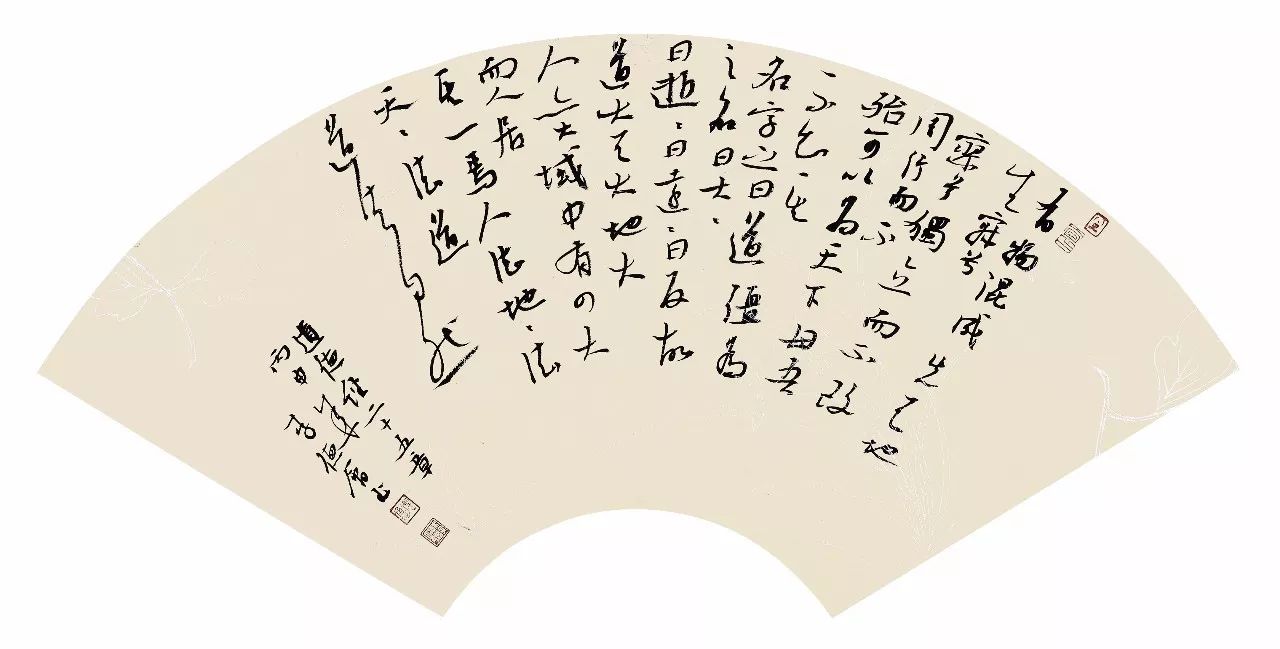 有物混成先天地
生寂兮
寥兮獨立而不改
周行而不
殆可以為天下母吾
不知其
名字之曰道彊為
之名曰大、
曰逝、曰遠、曰反故
道大天大地大
人亦大域中有四大
而人居
其一焉人法地、法
天、法道
道法自然
道德經二十五章
丙申年
李德